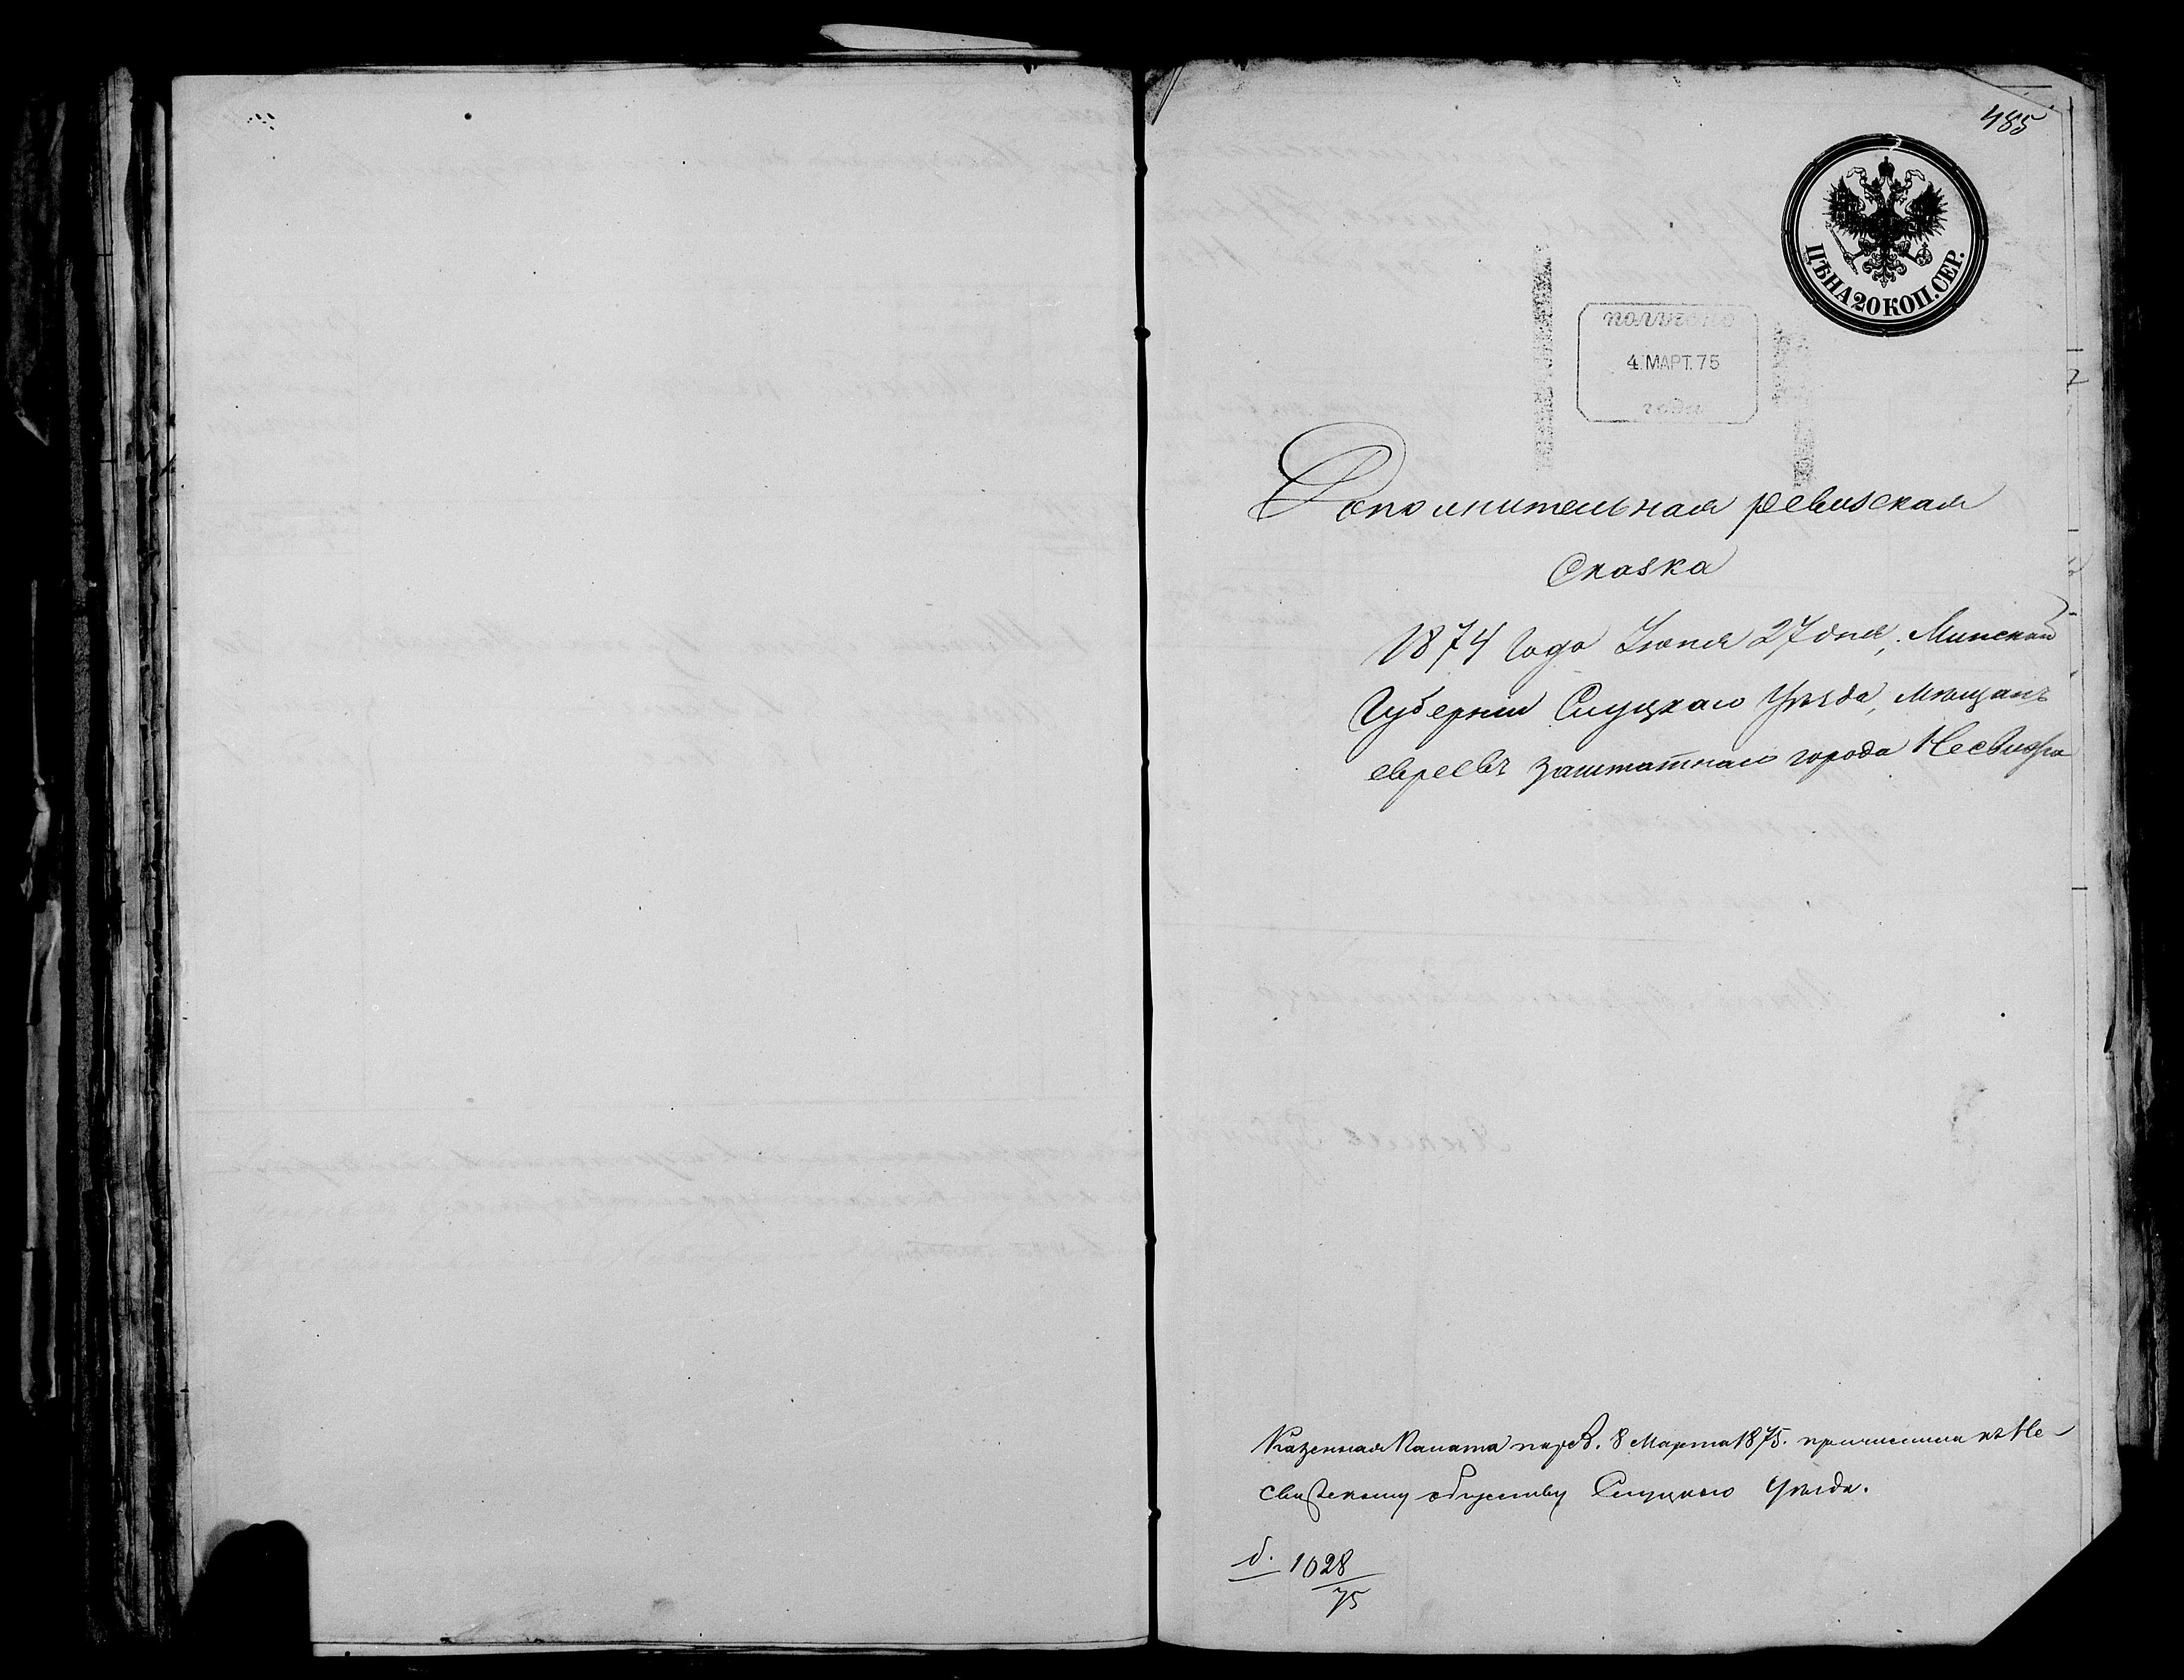 485
ЦѢНА 20 КОП. СЕР.
получено
4 МАРТ. 75
года
Дополнительная ревизская
Сказка
1874 Года Июня 27 дня, Минской
Губернии Слуцкаго Уѣзда, мѣщанъ
евреевъ заштатнаго города Несвижа
Казенная Палата 8 Марта 1875. причислила къ Не-
свижскому обществу Слуцкаго Уѣзда.
д. 1028
75